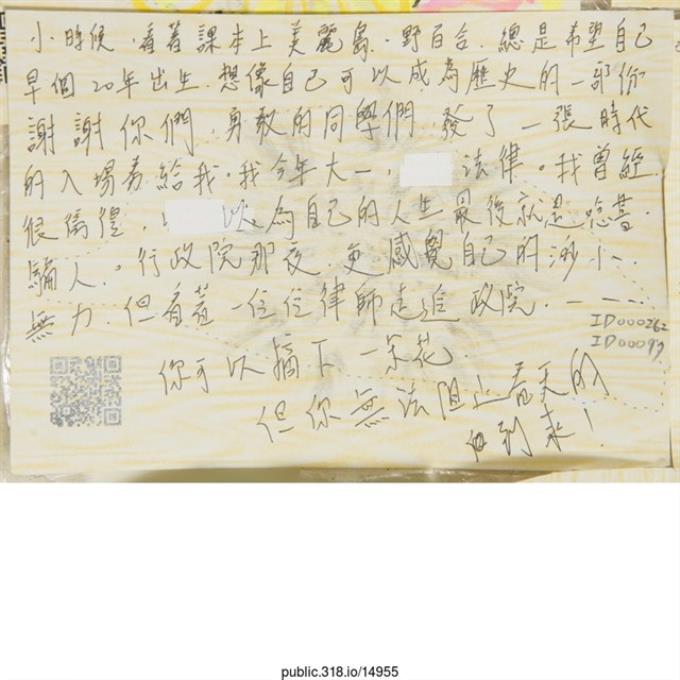 小時候,看著課本上美麗島、野百合,總是希望自己
早個20年出生.想像自己可以成為歷史的一部份
謝謝你們,勇敢的同學們,發了一張時代
的入場券給我。我今年大一, 法律。我曾經
很徬徨, 以為自己的人生最後就是唸書.
騙人。行政院那夜,更感覺自己的渺小、
無力.但看著一位位律師走進政院.
ID000262
ID00097
你可以摘下一朵花.
但你無法阻止春天的
到來!
public.318.io/14955